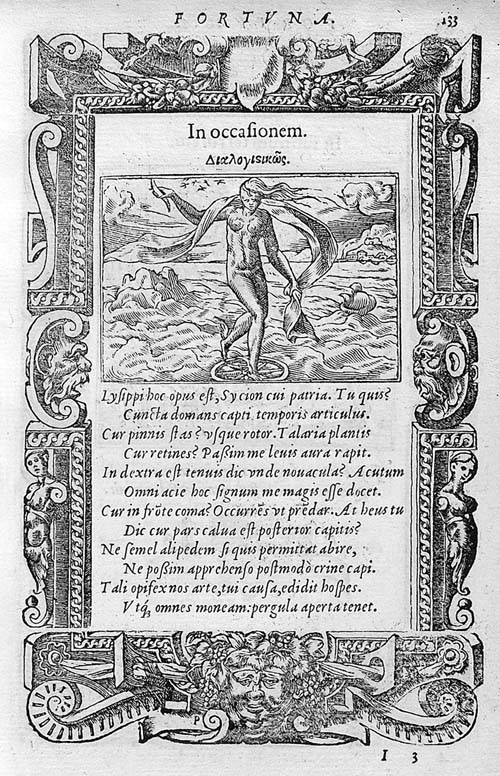 FORTVNA.
133
In occaſionem.
Διαλογιϛικῶς.
Lyſippi hoc opus eſt, Sycion cui patria. Tu quis?
Cuncta domans capti temporis articulus.
Cur pinnis ſtas? vſque rotor. Talaria plantis
Cur retines? Paßim me leuis aura rapit.
In dextra eſt tenuis dic vnde nouacula? Acutum
Omni acie hoc ſignum me magis eſſe docet.
Cur in frõte coma? Occurrẽs vt prẽdar. At heus tu
Dic cur pars calua eſt poſterior capitis?
Ne ſemel alipedem ſi quis permittat abire,
Ne poßim apprehenſo poſtmodò crine capi.
Tali opifex nos arte, tui cauſa, edidit hoſpes.
Vtq́; omnes moneam: pergula aperta tenet.
P
I 3